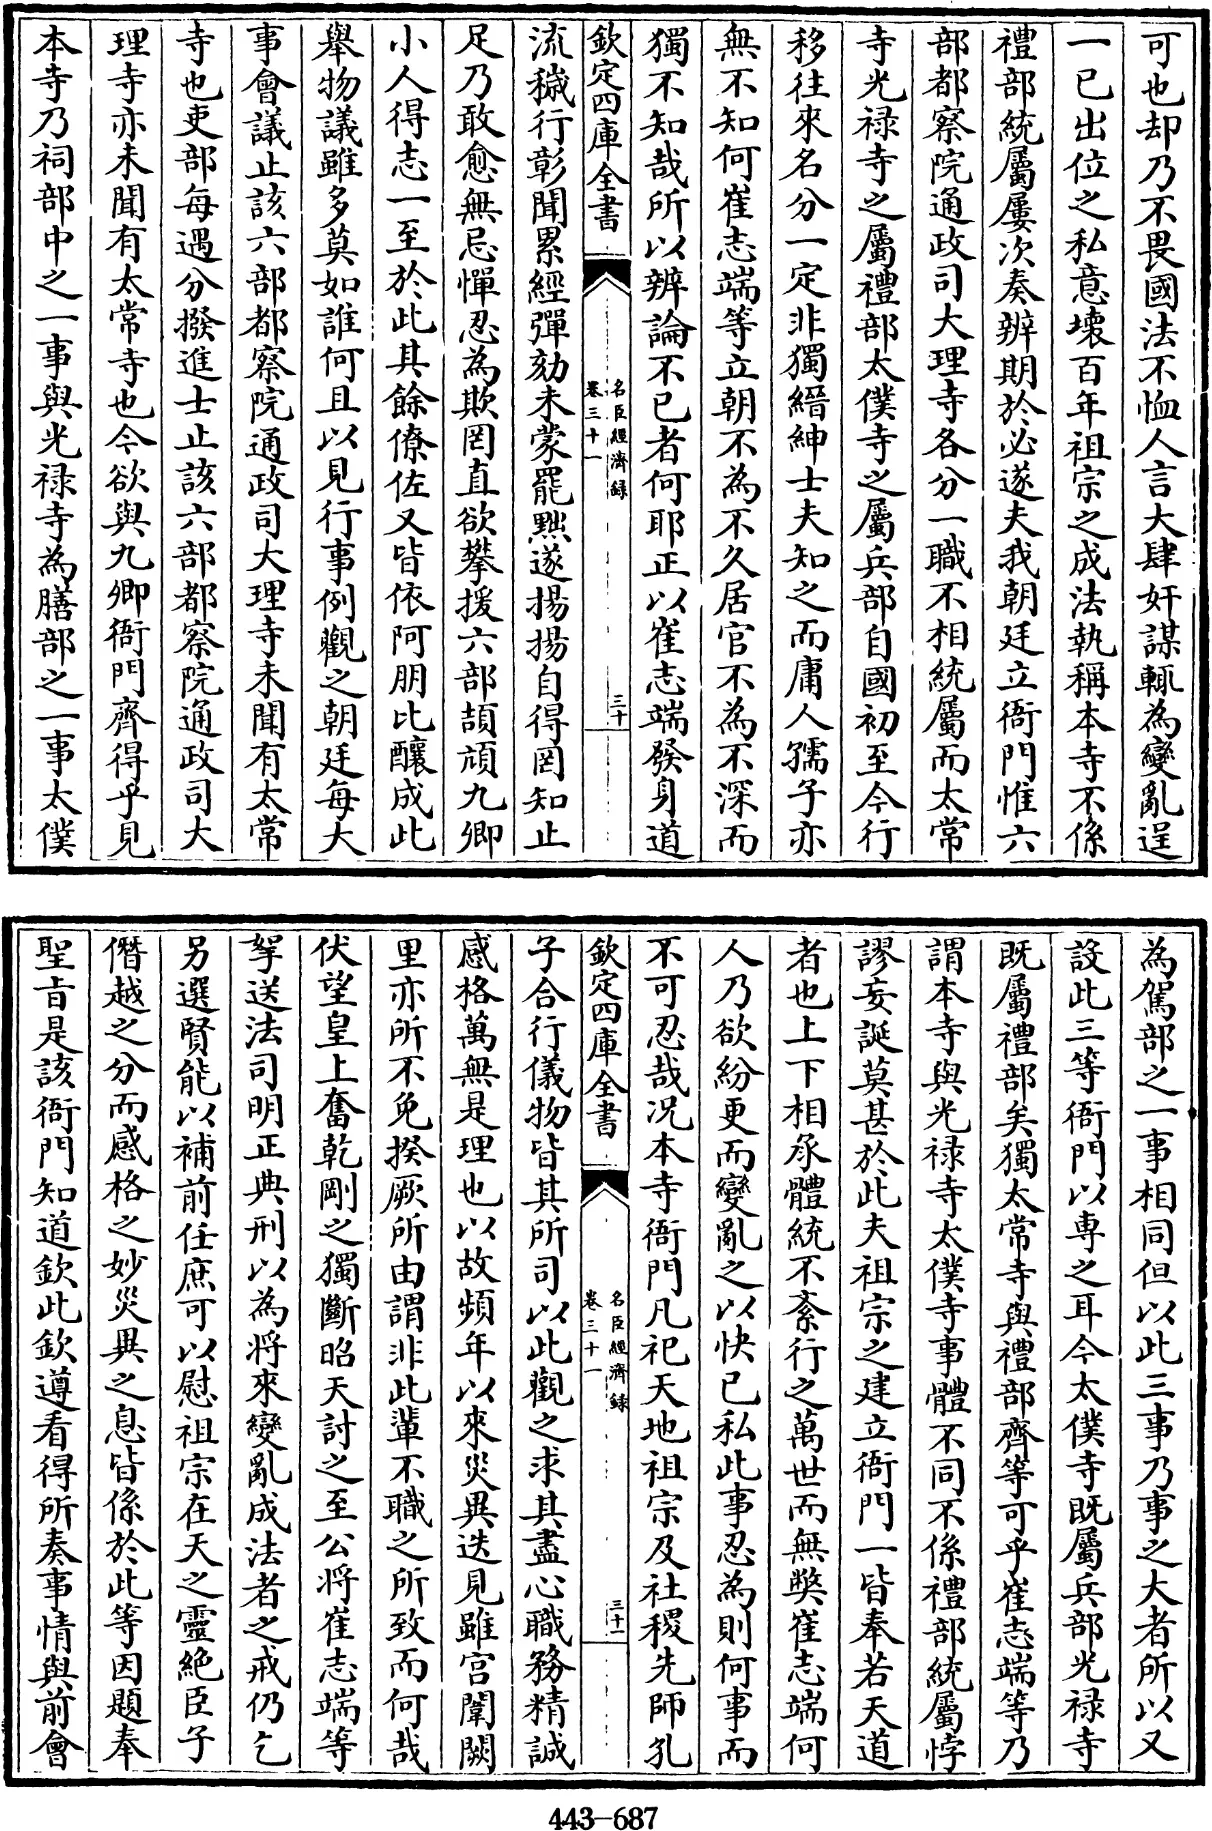 可也却乃不畏國法不恤人言大肆奸謀輒為變亂逞
一已出位之私意壞百年祖宗之成法執稱本寺不係
禮部統屬屢次奏辨期於必遂夫我朝廷立衙門惟六
部都察院通政司大理寺各分一職不相統屬而太常
寺光禄寺之屬禮部太僕寺之屬兵部自國初至今行
移往來名分一定非獨縉紳士夫知之而庸人孺子亦
無不知何崔志端等立朝不為不久居官不為不深而
獨不知哉所以辨論不已者何耶正以崔志端發身道
欽定四庫全書
名臣經濟録
卷三十一
三十
流穢行彰聞累經彈劾未蒙罷黜遂揚揚自得罔知止
足乃敢愈無忌憚忍為欺罔直欲攀援六部頡頏九卿
小人得志一至於此其餘僚佐又皆依阿朋比釀成此
舉物議雖多莫如誰何且以見行事例觀之朝廷每大
事會議止該六部都察院通政司大理寺未聞有太常
寺也吏部每遇分撥進士止該六部都察院通政司大
理寺亦未聞有太常寺也今欲與九卿衙門齊得乎見
本寺乃祠部中之一事與光禄寺為膳部之一事太僕
為駕部之一事相同但以此三事乃事之大者所以又
設此三等衙門以專之耳今太僕寺既屬兵部光禄寺
既屬禮部矣獨太常寺與禮部齊等可乎崔志端等乃
謂本寺與光禄寺太僕寺事體不同不係禮部統屬悖
謬妄誕莫甚於此夫祖宗之建立衙門一皆奉若天道
者也上下相承體統不紊行之萬世而無獘崔志端何
人乃欲紛更而變亂之以快已私此事忍為則何事而
不可忍哉况本寺衙門凡祀天地祖宗及社稷先師孔
欽定四庫全書
名臣經濟録
卷三十一
三十一
子合行儀物皆其所司以此觀之求其盡心職務精誠
感格萬無是理也以故頻年以來災異迭見雖宫闈闕
里亦所不免揆厥所由謂非此輩不職之所致而何哉
伏望皇上奮乾剛之獨斷昭天討之至公將崔志端等
拏送法司明正典刑以為將來變亂成法者之戒仍乞
另選賢能以補前任庶可以慰祖宗在天之靈絶臣子
僭越之分而感格之妙災異之息皆係於此等因題奉
聖旨是該衙門知道欽此欽遵看得所奏事情與前會
443-687